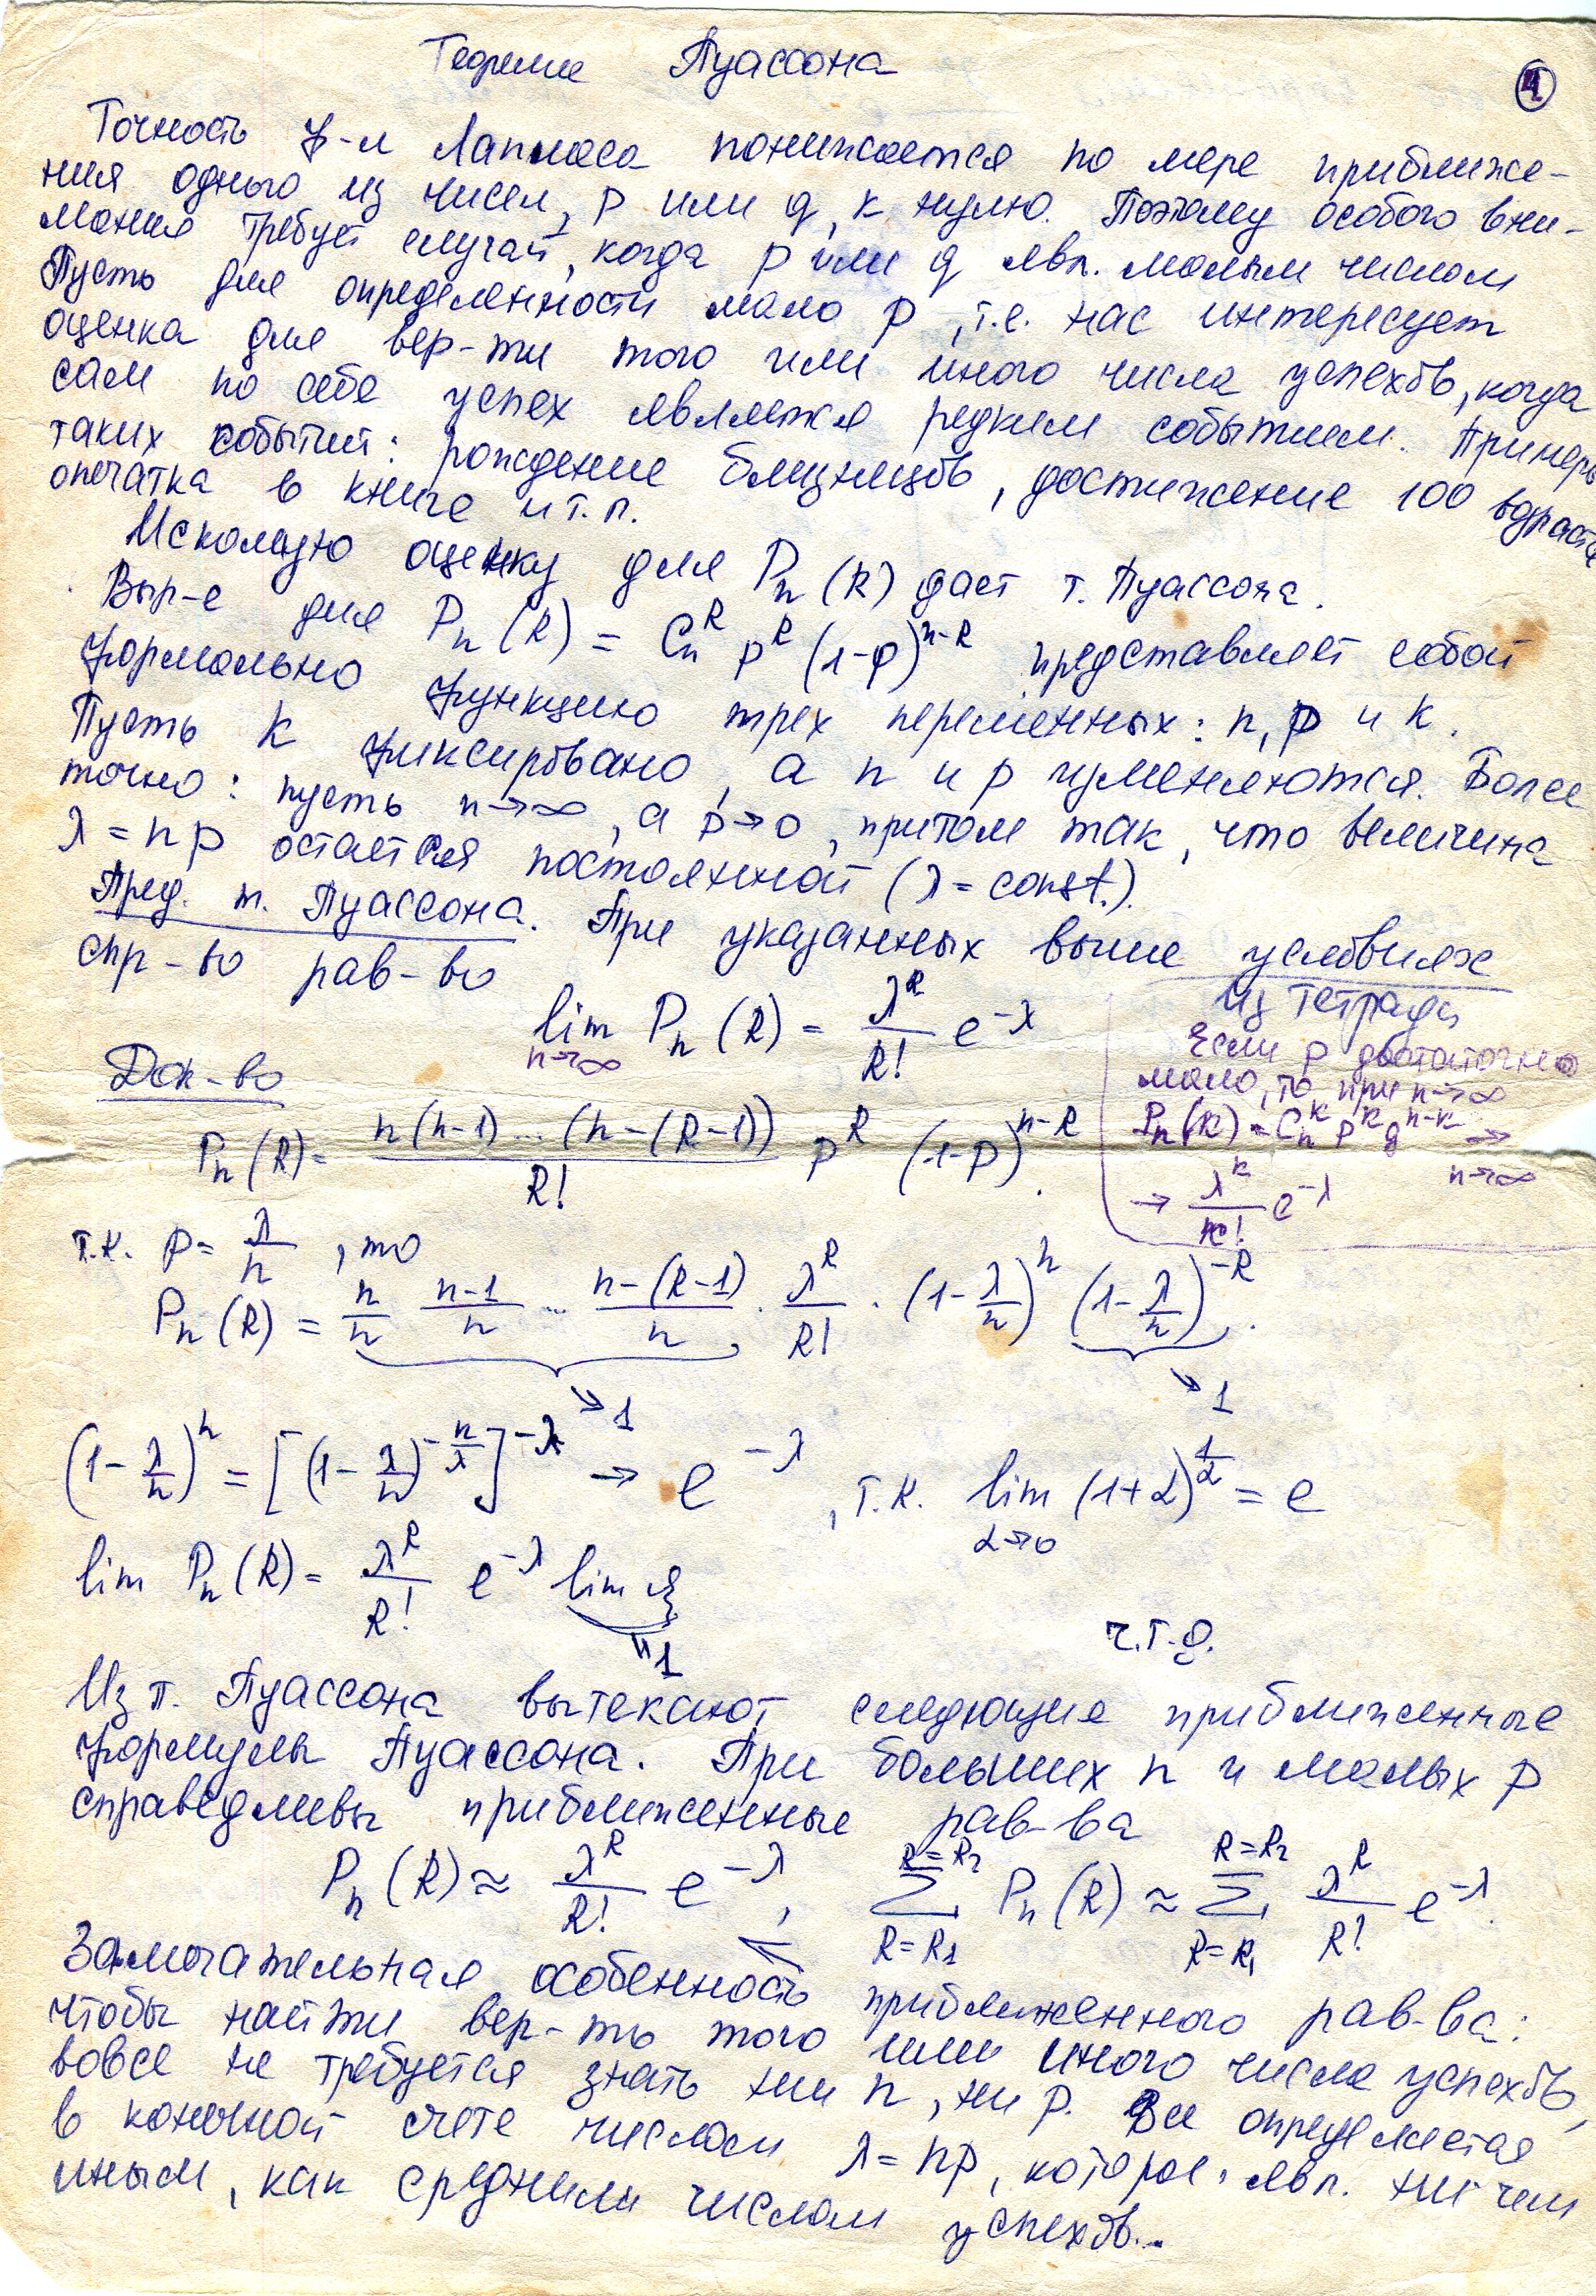 Теорема Пуассона
4
Точность ф-л Лапласа понижается по мере приближе-
ния одного из чисел, p или q, к нулю. Поэтому особого вни-
мания требует случай, когда p или q явл. малым числом
Пусть для определенности мало p, т.е. нас интересует
оценка для вер-ти того или иного числа успехов, когда
сам по себе успех является редким событием. Примеры
таких событий: рождение близнецов, достижение 100 возраста
опечатка в книге и т.п.
Искомую оценку для Pₙ(k) даст т. Пуассона.
Выр-е для Pₙ(k) = Cₙᵏ pᵏ (1-p)ⁿ⁻ᵏ представляет собой
формально функцию трех переменных: n, p и k.
Пусть k фиксировано, а n и p изменяются. Более
точно: пусть n→∞, а p→0, притом так, что величина
λ = np остается постоянной (λ = const.).
Пред. т. Пуассона. При указанных выше условиях
спр-во рав-во
lim Pₙ(k) = λᵏ/k! e^-λ
n→∞
из тетради
Если p достаточно
мало, то при n→∞
Pₙ(k) = Cₙᵏ pᵏ qⁿ⁻ᵏ →
n→∞
→ λᵏ/k! e^-λ
Док-во
Pₙ(k) = n(n-1)...(n-(k-1))/k! pᵏ (1-p)ⁿ⁻ᵏ.
т.к. p = λ/n, то
Pₙ(k) = n/n (n-1)/n ... (n-(k-1))/n · λᵏ/k! · (1-λ/n)ⁿ (1-λ/n)⁻ᵏ.
→1 →1
(1-λ/n)ⁿ = [(1-λ/n)^(-n/λ)]^-λ → e^-λ, т.к. lim (1+α)^(1/α) = e
α→0
lim Pₙ(k) = λᵏ/k! e^-λ lim
" 1
ч.т.д.
Из т. Пуассона вытекают следующие приближенные
формулы Пуассона. При больших n и малых p
справедливы приближенные рав-ва
Pₙ(k) ≈ λᵏ/k! e^-λ, k=k₂ Σ k=k₁ Pₙ(k) ≈ k=k₂ Σ k=k₁ λᵏ/k! e^-λ.
Замечательная особенность приближенного рав-ва:
чтобы найти вер-ть того или иного числа успехов,
вовсе не требуется знать ни n, ни p. Все определяется
в конечной счете числом λ = np, которое явл. ни чем
иным, как средним числом успехов...